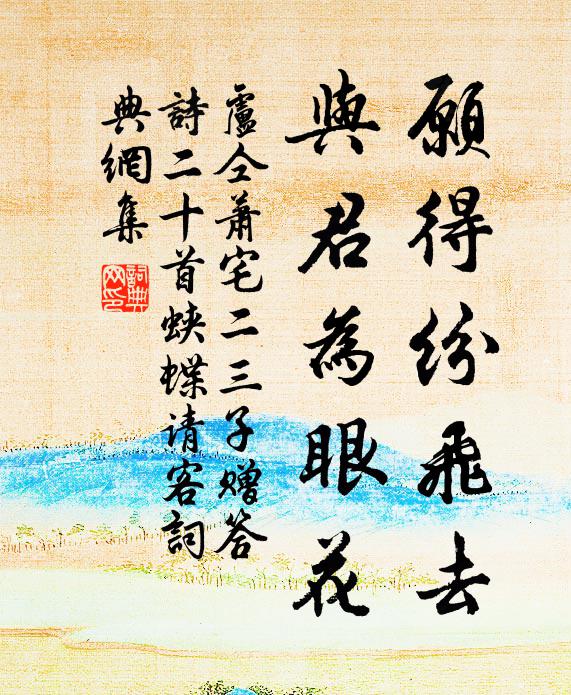 願得紛飛去
與君為眼花
盧仝蕭宅二三子贈答
詩二十首蛱蝶请客詞
典網集
詞典
网印